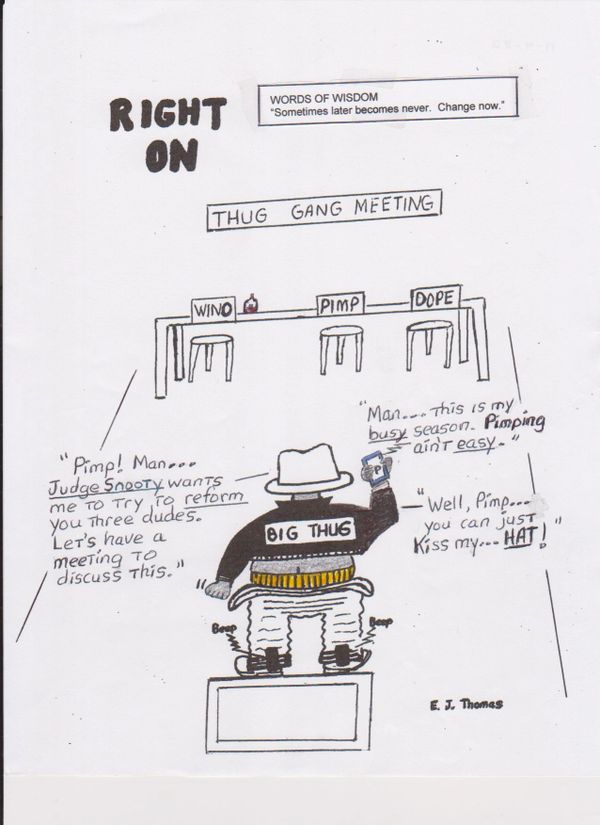 RIGHT
ON
WORDS OF WISDOM
"Sometimes later becomes never. Change now."
THUG GANG MEETING
WINO
PIMP
DOPE
"Man... This is my
busy season. Pimping
ain't easy."
"Pimp! Man...
Judge Snooty wants
me to try to reform
you three dudes.
Let's have a
meeting to
discuss this."
P
BIG THUG
"Well, Pimp...
you can just
Kiss my... HAT!"
Beep
Beep
E. J. Thomas